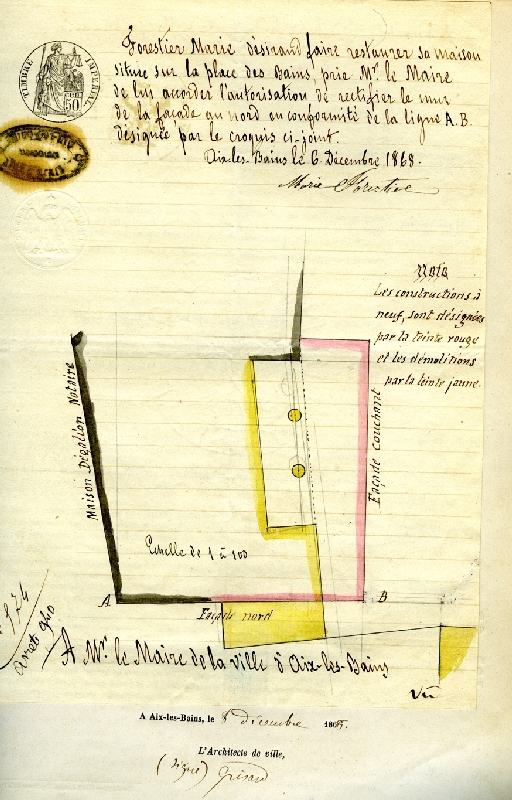 TIMBRE IMPÉRIAL
50
Forestier Marie désirand faire restaurer sa maison
située sur la place des Bains, prie Mr. le Maire
de lui accorder l'autorisation de rectifier le mur
de la façade au nord en conformité de la ligne A.B.
désignée par le croquis ci-joint.
Aix-les-Bains le 6 Décembre 1868.
Marie Forestier
Nota
Les constructions à
neuf, sont désignées
par la teinte rouge
et les démolitions
par la teinte jaune.
Maison Dégallon Notaire
Façade couchant
Echelle de 1 à 100
A
B
Façade nord
974
arreté 940
A Mr. le Maire de la ville d'Aix-les-Bains
Vu
A Aix-les-Bains, le 8 décembre 1868.
L'Architecte de ville,
(signé)